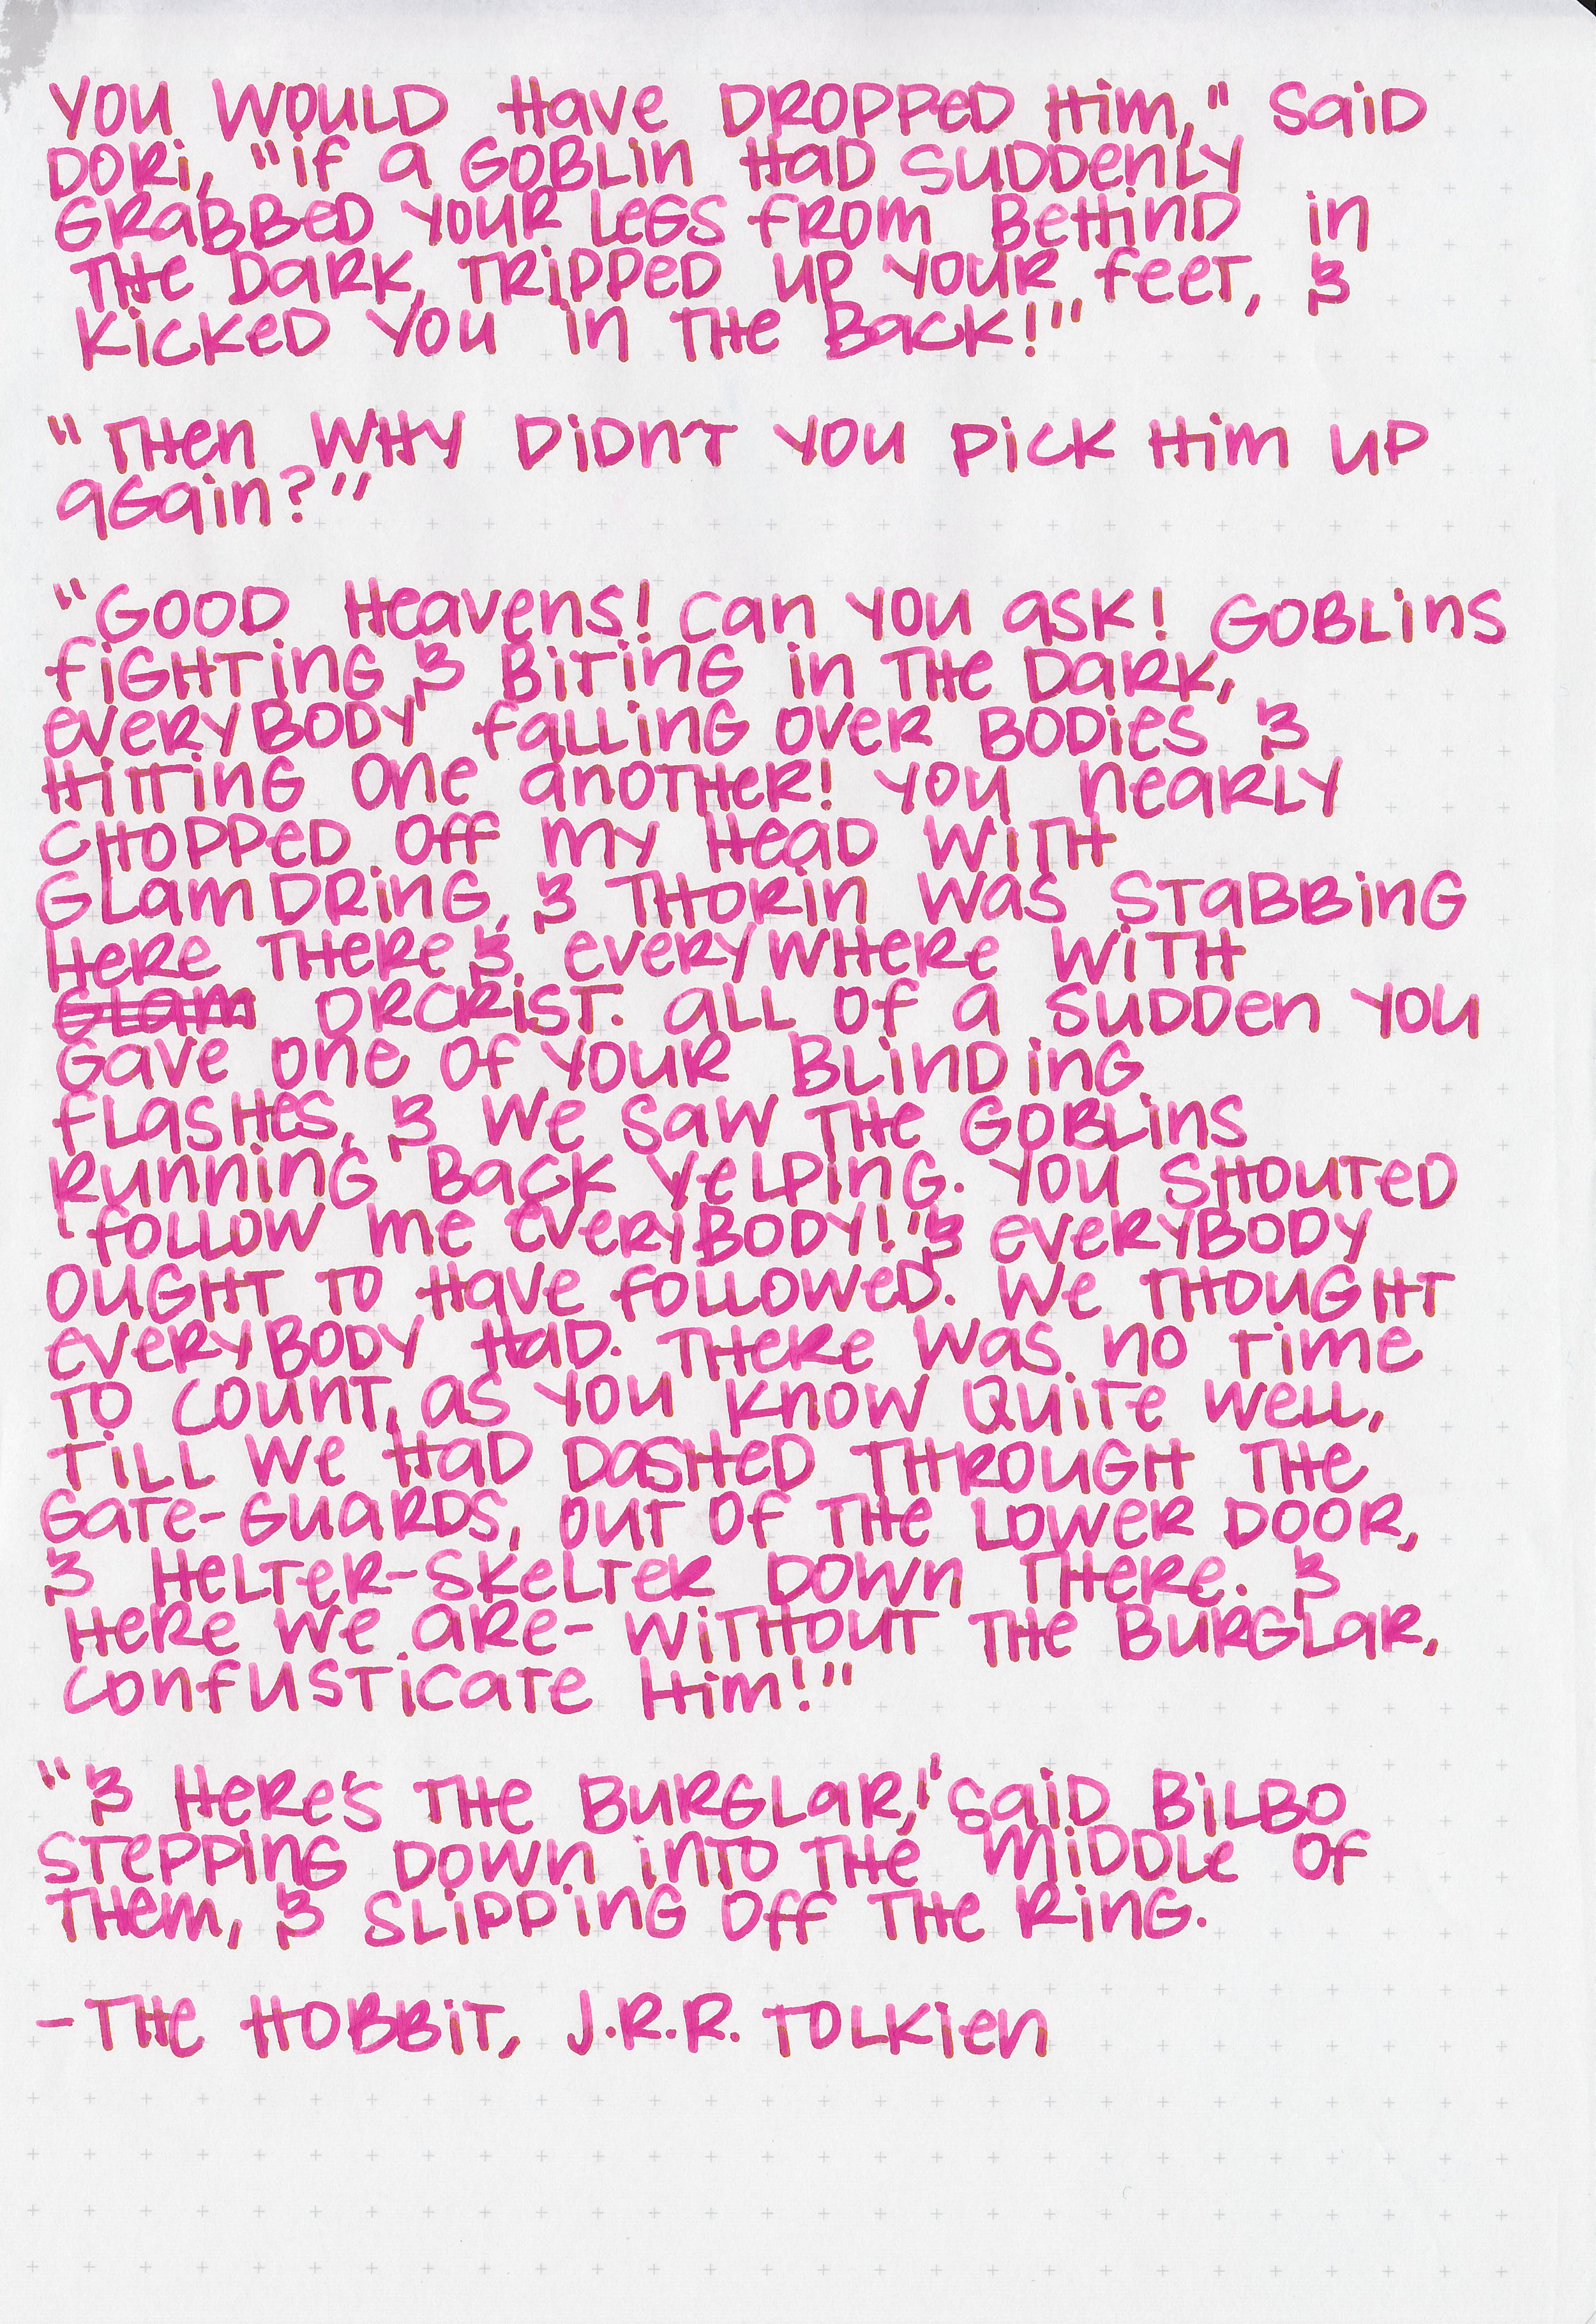 YOU WOULD HAVE DROPPED HIM," SAID
DORI, "IF A GOBLIN HAD SUDDENLY
GRABBED YOUR LEGS FROM BEHIND IN
THE DARK, TRIPPED UP YOUR FEET, &
KICKED YOU IN THE BACK!"
"THEN WHY DIDN'T YOU PICK HIM UP
AGAIN?"
"GOOD HEAVENS! CAN YOU ASK! GOBLINS
FIGHTING & BITING IN THE DARK,
EVERYBODY FALLING OVER BODIES &
HITTING ONE ANOTHER! YOU NEARLY
CHOPPED OFF MY HEAD WITH
GLAMDRING, & THORIN WAS STABBING
HERE THERE & EVERYWHERE WITH
GLAM ORCRIST. ALL OF A SUDDEN YOU
GAVE ONE OF YOUR BLINDING
FLASHES, & WE SAW THE GOBLINS
RUNNING BACK YELPING. YOU SHOUTED
'FOLLOW ME EVERYBODY!' & EVERYBODY
OUGHT TO HAVE FOLLOWED. WE THOUGHT
EVERYBODY HAD. THERE WAS NO TIME
TO COUNT, AS YOU KNOW QUITE WELL,
TILL WE HAD DASHED THROUGH THE
GATE-GUARDS, OUT OF THE LOWER DOOR,
& HELTER-SKELTER DOWN THERE. &
HERE WE ARE- WITHOUT THE BURGLAR,
CONFUSTICATE HIM!"
"& HERE'S THE BURGLAR!' SAID BILBO
STEPPING DOWN INTO THE MIDDLE OF
THEM, & SLIPPING OFF THE RING.
-THE HOBBIT, J.R.R. TOLKIEN